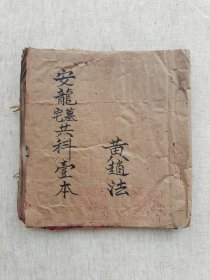 安龍墓宅共科壹本
黃趙法